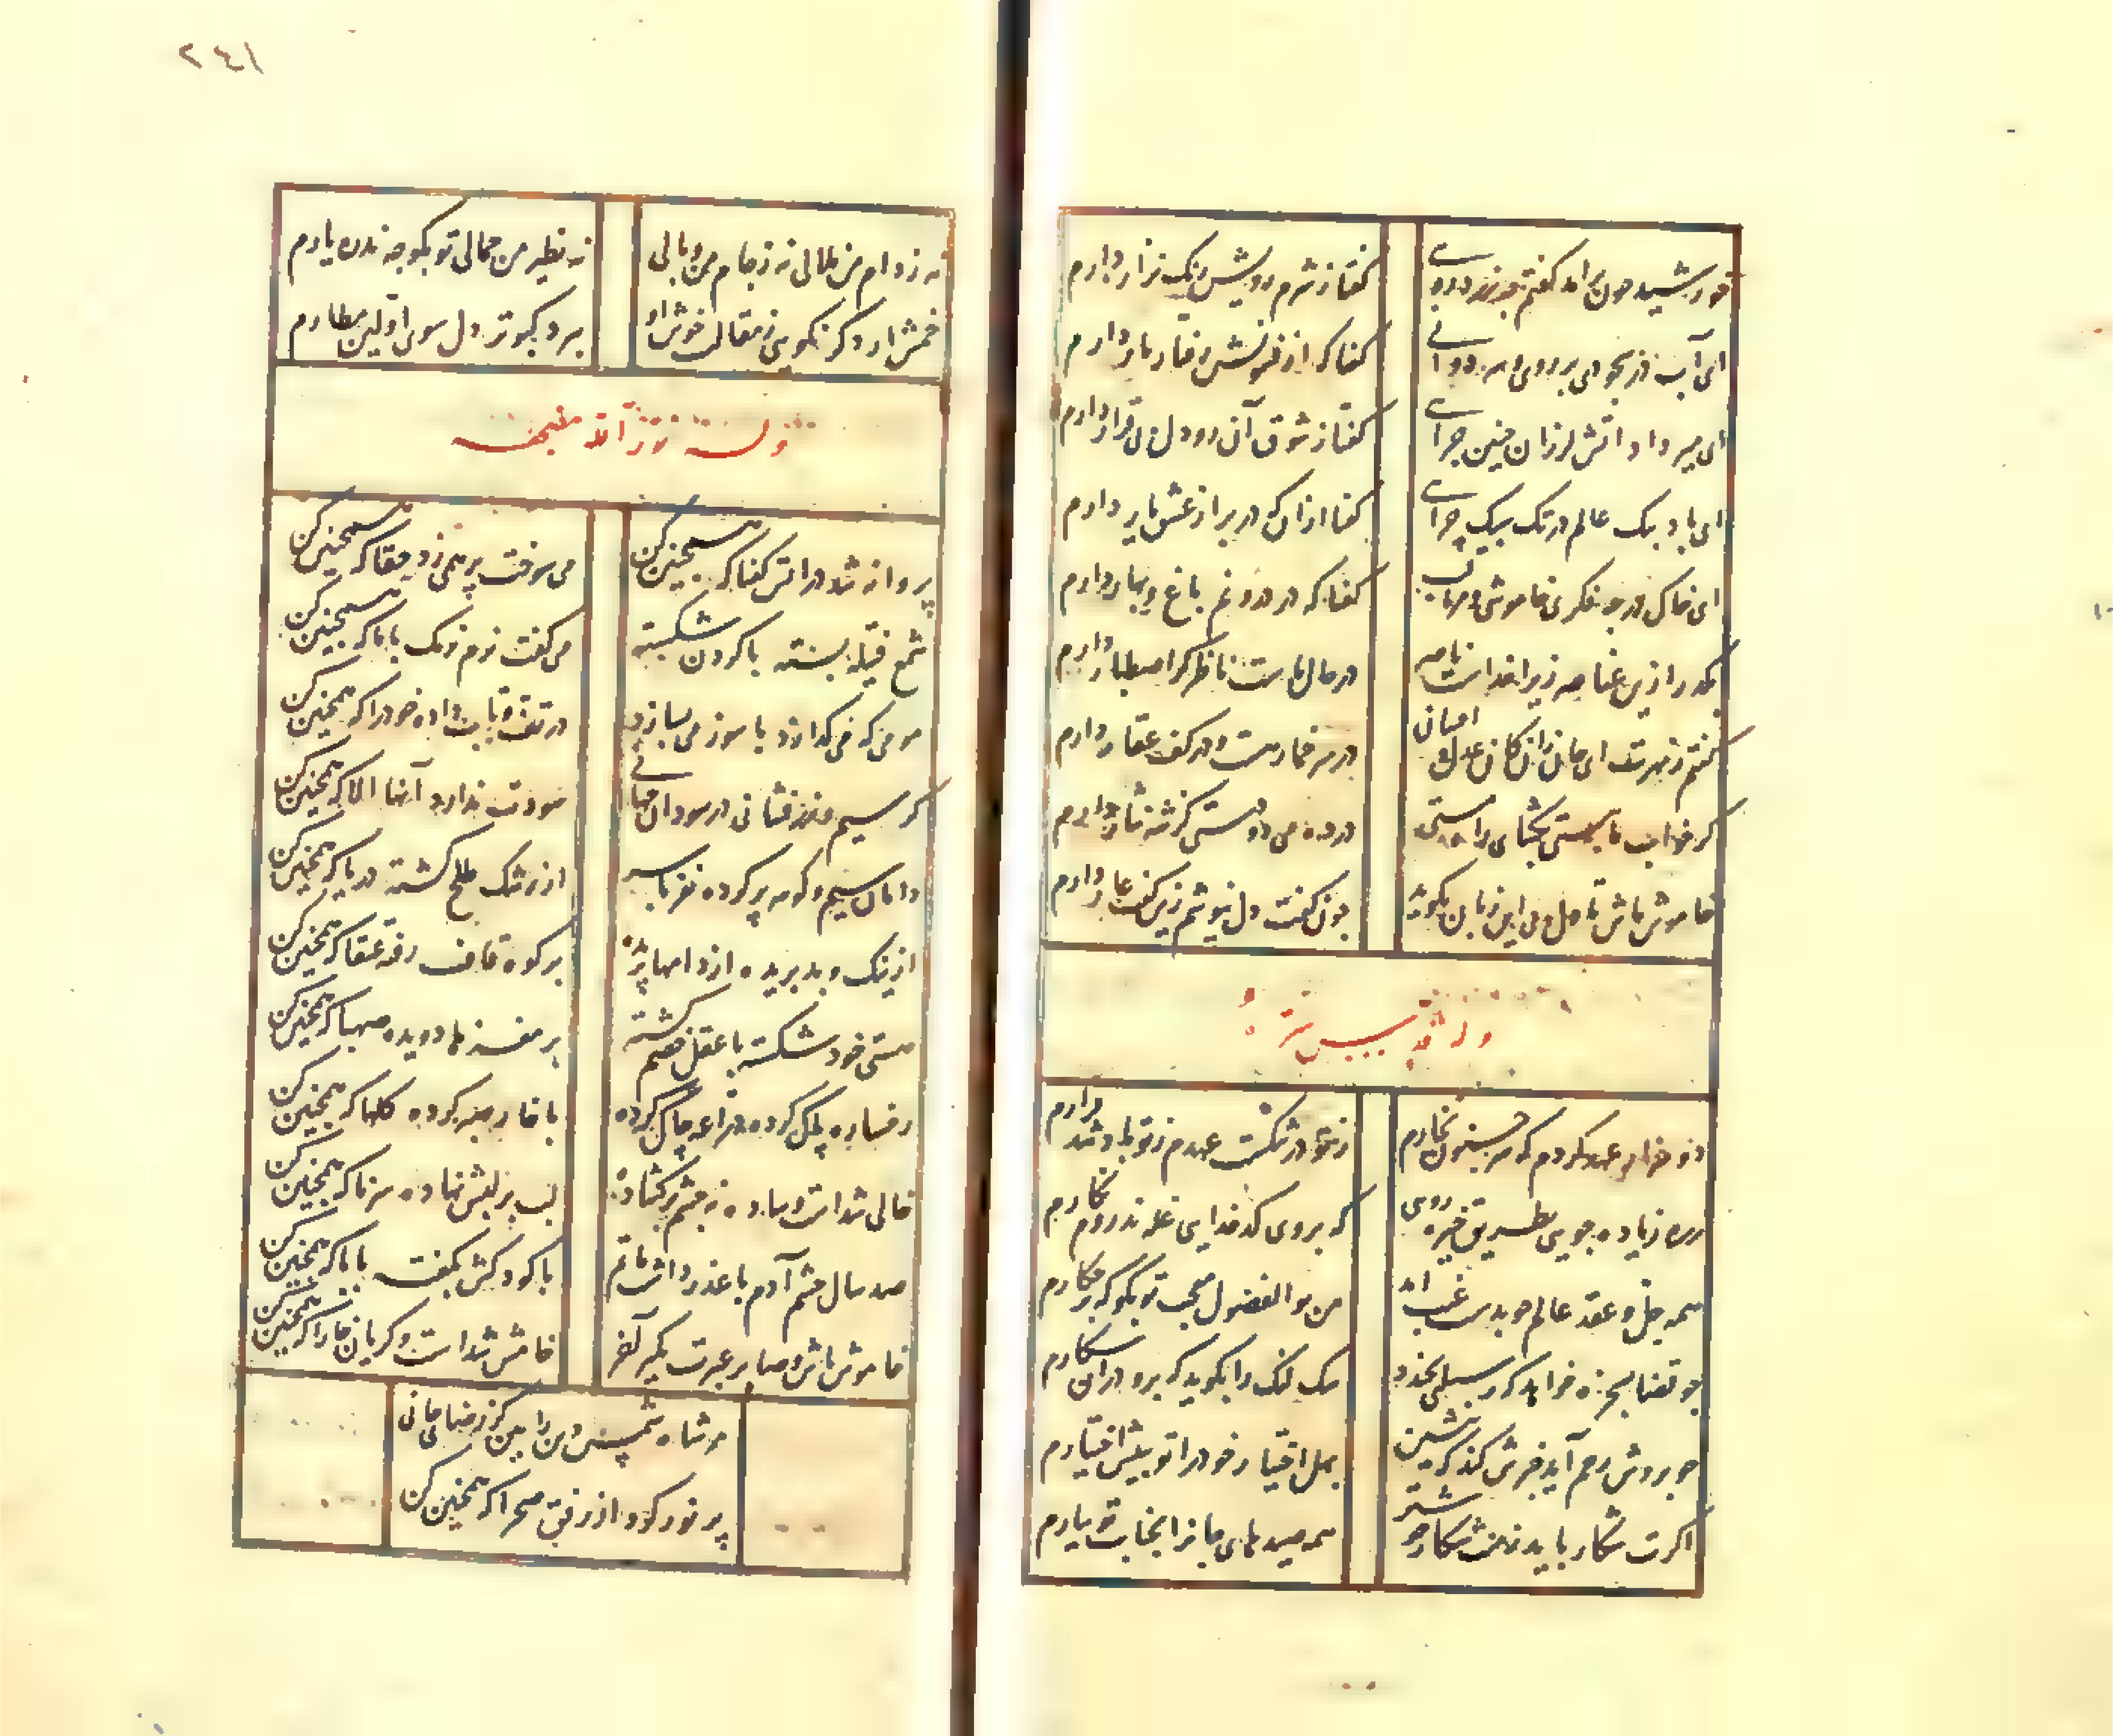 خورشید چون برآمد گفتم چه زرد رویی
گفتا ز شرم رویش رنگ نزار دارم
ای آب در سجودی بر روی و سر دوانی
گفتا که از فسونش رفتار مار دارم
ای میر داد آتش لرزان چنین چرایی
گفتا ز شوق آن رو دل بی قرار دارم
ای باد پیک عالم در تک سبک چرایی
گفتا از آن که در بر از عشق یار دارم
ای خاک در چه فکری خاموشی و مراقب
گفتا که در درونم باغ و بهار دارم
بگذر ازین عناصر زیرا خداست ناصر
در حال ماست ناظر کرا اصطبار دارم
گفتم ز بهرت ای جان
در سر خمار مست و در کف عقار دارم
گر خواب ما ببستی بگشای راه مستی
در ده می دو دستی گر نه نثار دارم
خاموش باش تا دل بی این زبان بگوید
چون گفت دل نیوشم زین گفت عار دارم
دو هزار عهد کردم که سر جنون نخارم
ز تو در شکست عهدم ز تو باد شد قرارم
ز ره زیاده جویی به طریق خیره رویی
که بروی کدخدایی غله ندروم نکارم
همه حل و عقد عالم چو بدست غیب آمد
من بوالفضول معجب تو بگو که بر چه کارم
چو قضا به سخره خواهد که ز سبلتی بخندد
سگ لنگ را بگوید که برو در آن شکارم
چو برویش رحم آید خبرش کند که بنشین
بهل اختیار خود را تو به پیش اختیارم
اگرت شکار باید ز منت شکار خوشتر
همه صیدهای جان را به نثار بر تو بارم
نه ز دام من ملالی نه ز جام من وبالی
نه نظیر من جمالی تو بگو چه ندره یارم
خمش ار دگر بگویم ز مقالت خوش او
بپرد کبوتر دل سوی اولین مطارم
پروانه شد در آتش گفتا که همچنین کن
می سوخت پر همی زد حقا که همچنین کن
شمع فتیله بسته با گردن شکسته
می گفت نرم نرمک با ما که همچنین کن
مومی که می گدازد با سوز می بسازد
در تف و تاب داده خود را که همچنین کن
گر سیم و زر فشانی در سود آن جهانی
سودت ندارد آنها الا که همچنین کن
دامان سیم و گوهر پر کرده نغز یاسر
از رشک تلخ گشته دریا که همچنین کن
از نیک و بد بریده از دامها پریده
بر کوه قاف رفته عنقا که همچنین کن
هستی خود شکسته با عقل خصم گشته
بر مغزها دویده صهبا که همچنین کن
رخساره پاک کرده دراعه چاک کرده
با خار صبر کرده گلها که همچنین کن
خالی شدست و ساده نه چشم برگشاده
لب بر لبش نهاده سرنا که همچنین کن
صد سال چشم آدم با عذر داشت ماتم
با کودکانش گفت بابا که همچنین کن
خاموش باش و صابر عبرت بگیر آخر
خامش شدست و گریان خارا که همچنین کن
در شاه شمس دین را بین کز رضای جانی
پر نور کرد از رخ صحرا که همچنین کن
٢٤١